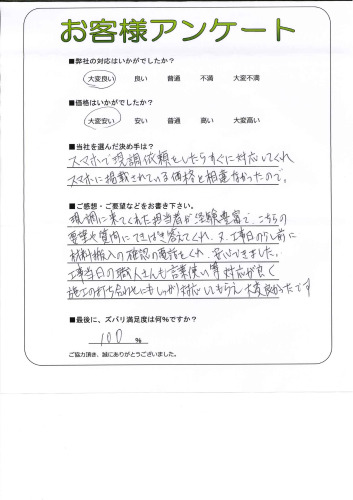 お客様アンケート
■弊社の対応はいかがでしたか?
大変良い 良い 普通 不満 大変不満
■価格はいかがでしたか?
大変安い 安い 普通 高い 大変高い
■当社を選んだ決め手は?
スマホで現調依頼をしたらすぐに対応してくれ
スマホに掲載されている価格と相違なかったので。
■ご感想・ご要望などをお書き下さい。
現調に来てくれた担当者が経験豊富で、こちらの
要望や質問にてきぱき答えてくれ、又、工事日の少し前に
材料搬入の確認の電話をくれ、安心できました。
工事当日の職人さんも言葉使い等対応が良く
施工の打ち合わせにもしっかり対応してもらえ大変良かったです
■最後に、ズバリ満足度は何%ですか?
100 %
ご協力頂き、誠にありがとうございました。